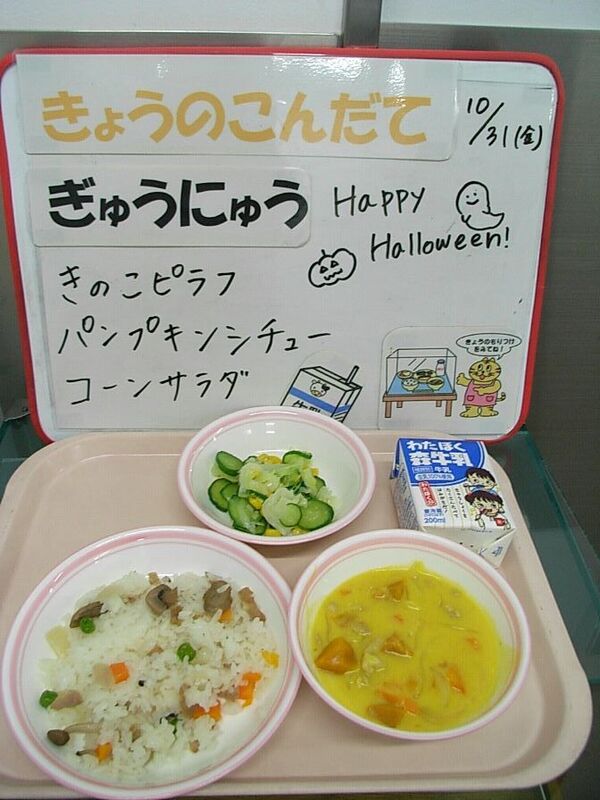 きょうのこんだて
10/31(金)
ぎゅうにゅう
Happy
Halloween!
きのこピラフ
パンプキンシチュー
コーンサラダ
きょうのもりつけ
をみてね!
わたぼく
牛乳
200ml